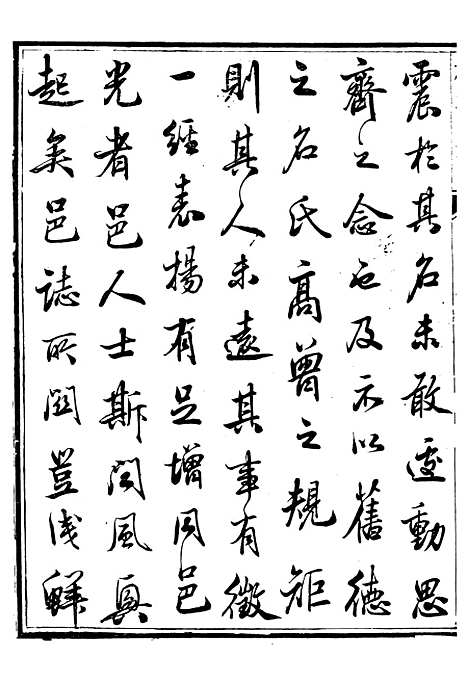 震於其名未敢遽動思
齊之念也及示以舊德
之名氏高曾之規矩
則其人未遠其事有徵
一經表揚有足增同邑
光者邑人士斯聞風興
起矣邑誌所關豈淺鮮